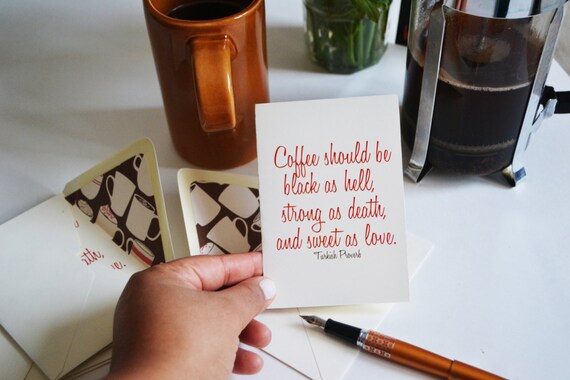 Coffee should be
black as hell,
strong as death,
and sweet as love.
Turkish Proverb
th,
e.